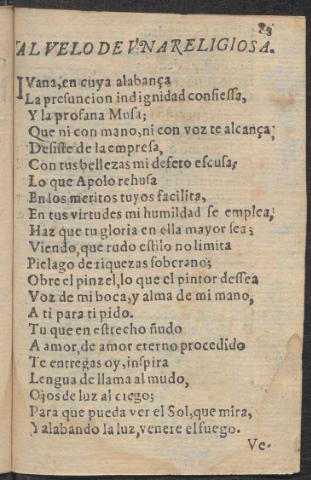 83
AL VELO DE VNA RELIGIOSA.
IVana, en cuya alabança
La presuncion indignidad confiessa,
Y la profana Musa;
Que ni con mano, ni con voz te alcança;
Desiste de la empresa,
Con tus bellezas mi defeto escusa,
Lo que Apolo rehusa
En los meritos tuyos facilita,
En tus virtudes mi humildad se emplea;
Haz que tu gloria en ella mayor sea;
Viendo, que rudo estilo no limita
Pielago de riquezas soberano;
Obre el pinzel, lo que el pintor dessea
Voz de mi boca, y alma de mi mano,
A ti para ti pido.
Tu que en estrecho ñudo
A amor, de amor eterno procedido
Te entregas oy, inspira
Lengua de llama al mudo,
Ojos de luz al ciego;
Para que pueda ver el Sol, que mira,
Y alabando la luz, venere el fuego.
Ve-